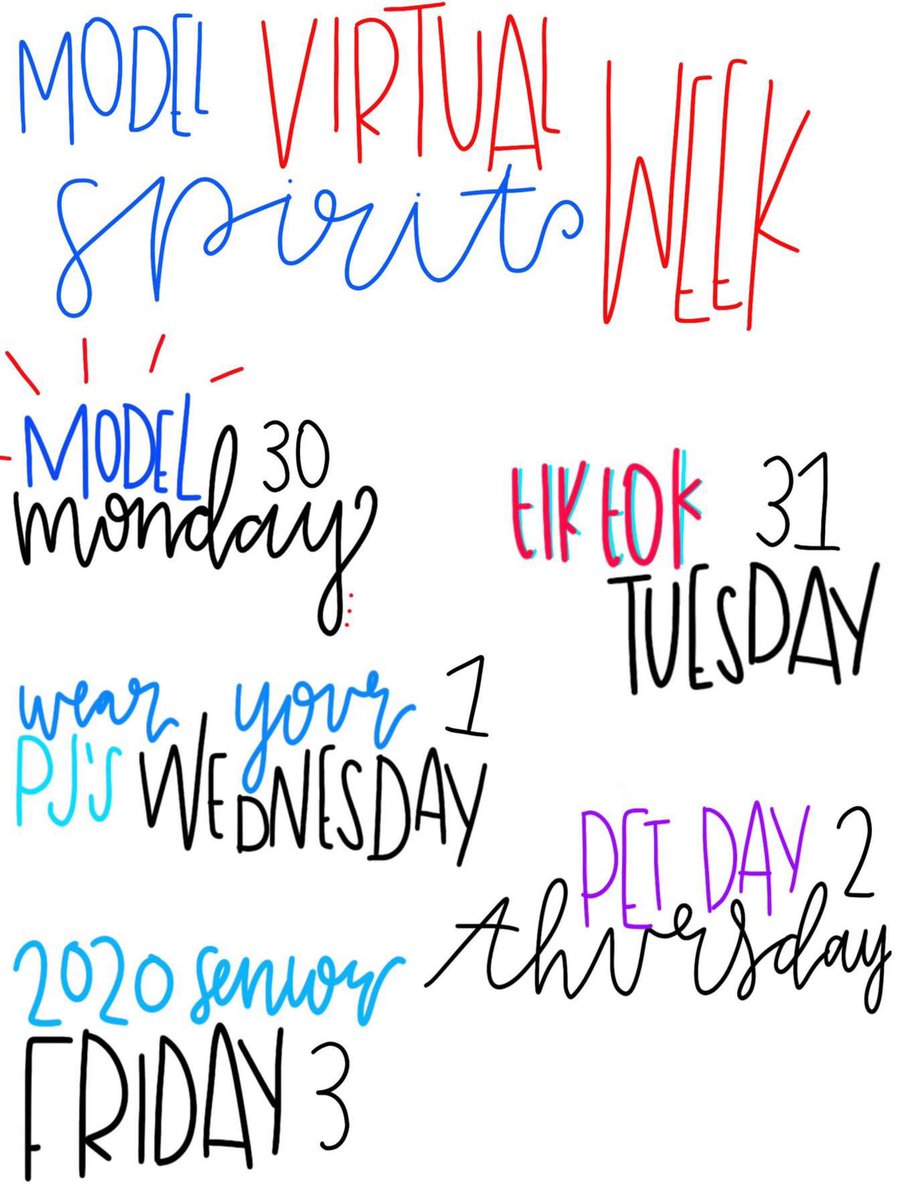 MODEL VIRTUAL
spirit WEEK
MODEL 30
monday
tiktok 31
TUESDAY
wear your 1
PJ'S WEDNESDAY
PET DAY 2
thursday
2020 senior
FRIDAY 3